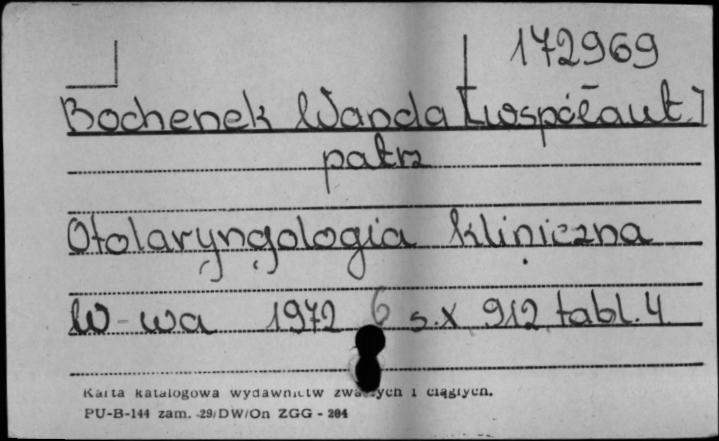 172969
Bochenek Wanda [współaut.]
patrz
Otolaryngologia kliniczna
W-wa 1972 6 s.X 912 tabl. 4
Karta katalogowa wydawnictw zwartych i ciągłych.
PU-B-144 zam. 29/DW/On ZGG - 204